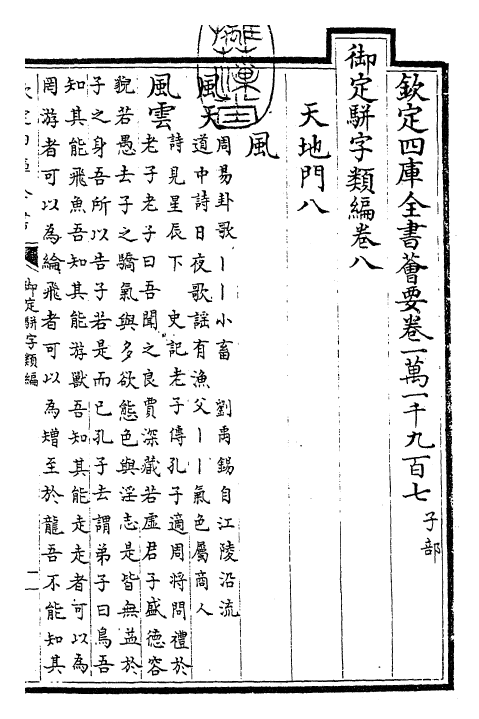 欽定四庫全書薈要卷一萬一千九百七 子部
御定駢字類編卷八
天地門八
風
風天 周易卦歌丨丨小畜 劉禹錫自江陵沿流
道中詩日夜歌謠有漁父丨丨氣色屬商人
詩見星辰下 史記老子傳孔子適周將問禮於
風雲 老子老子曰吾聞之良賈深藏若虛君子盛德容
貌若愚去子之驕氣與多欲態色與淫志是皆無益於
子之身吾所以告子若是而已孔子去謂弟子曰鳥吾
知其能飛魚吾知其能游獸吾知其能走走者可以為
罔游者可以為綸飛者可以為矰至於龍吾不能知其
御定駢字類編
一